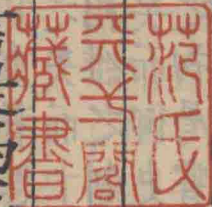 范氏
天一閣
藏書